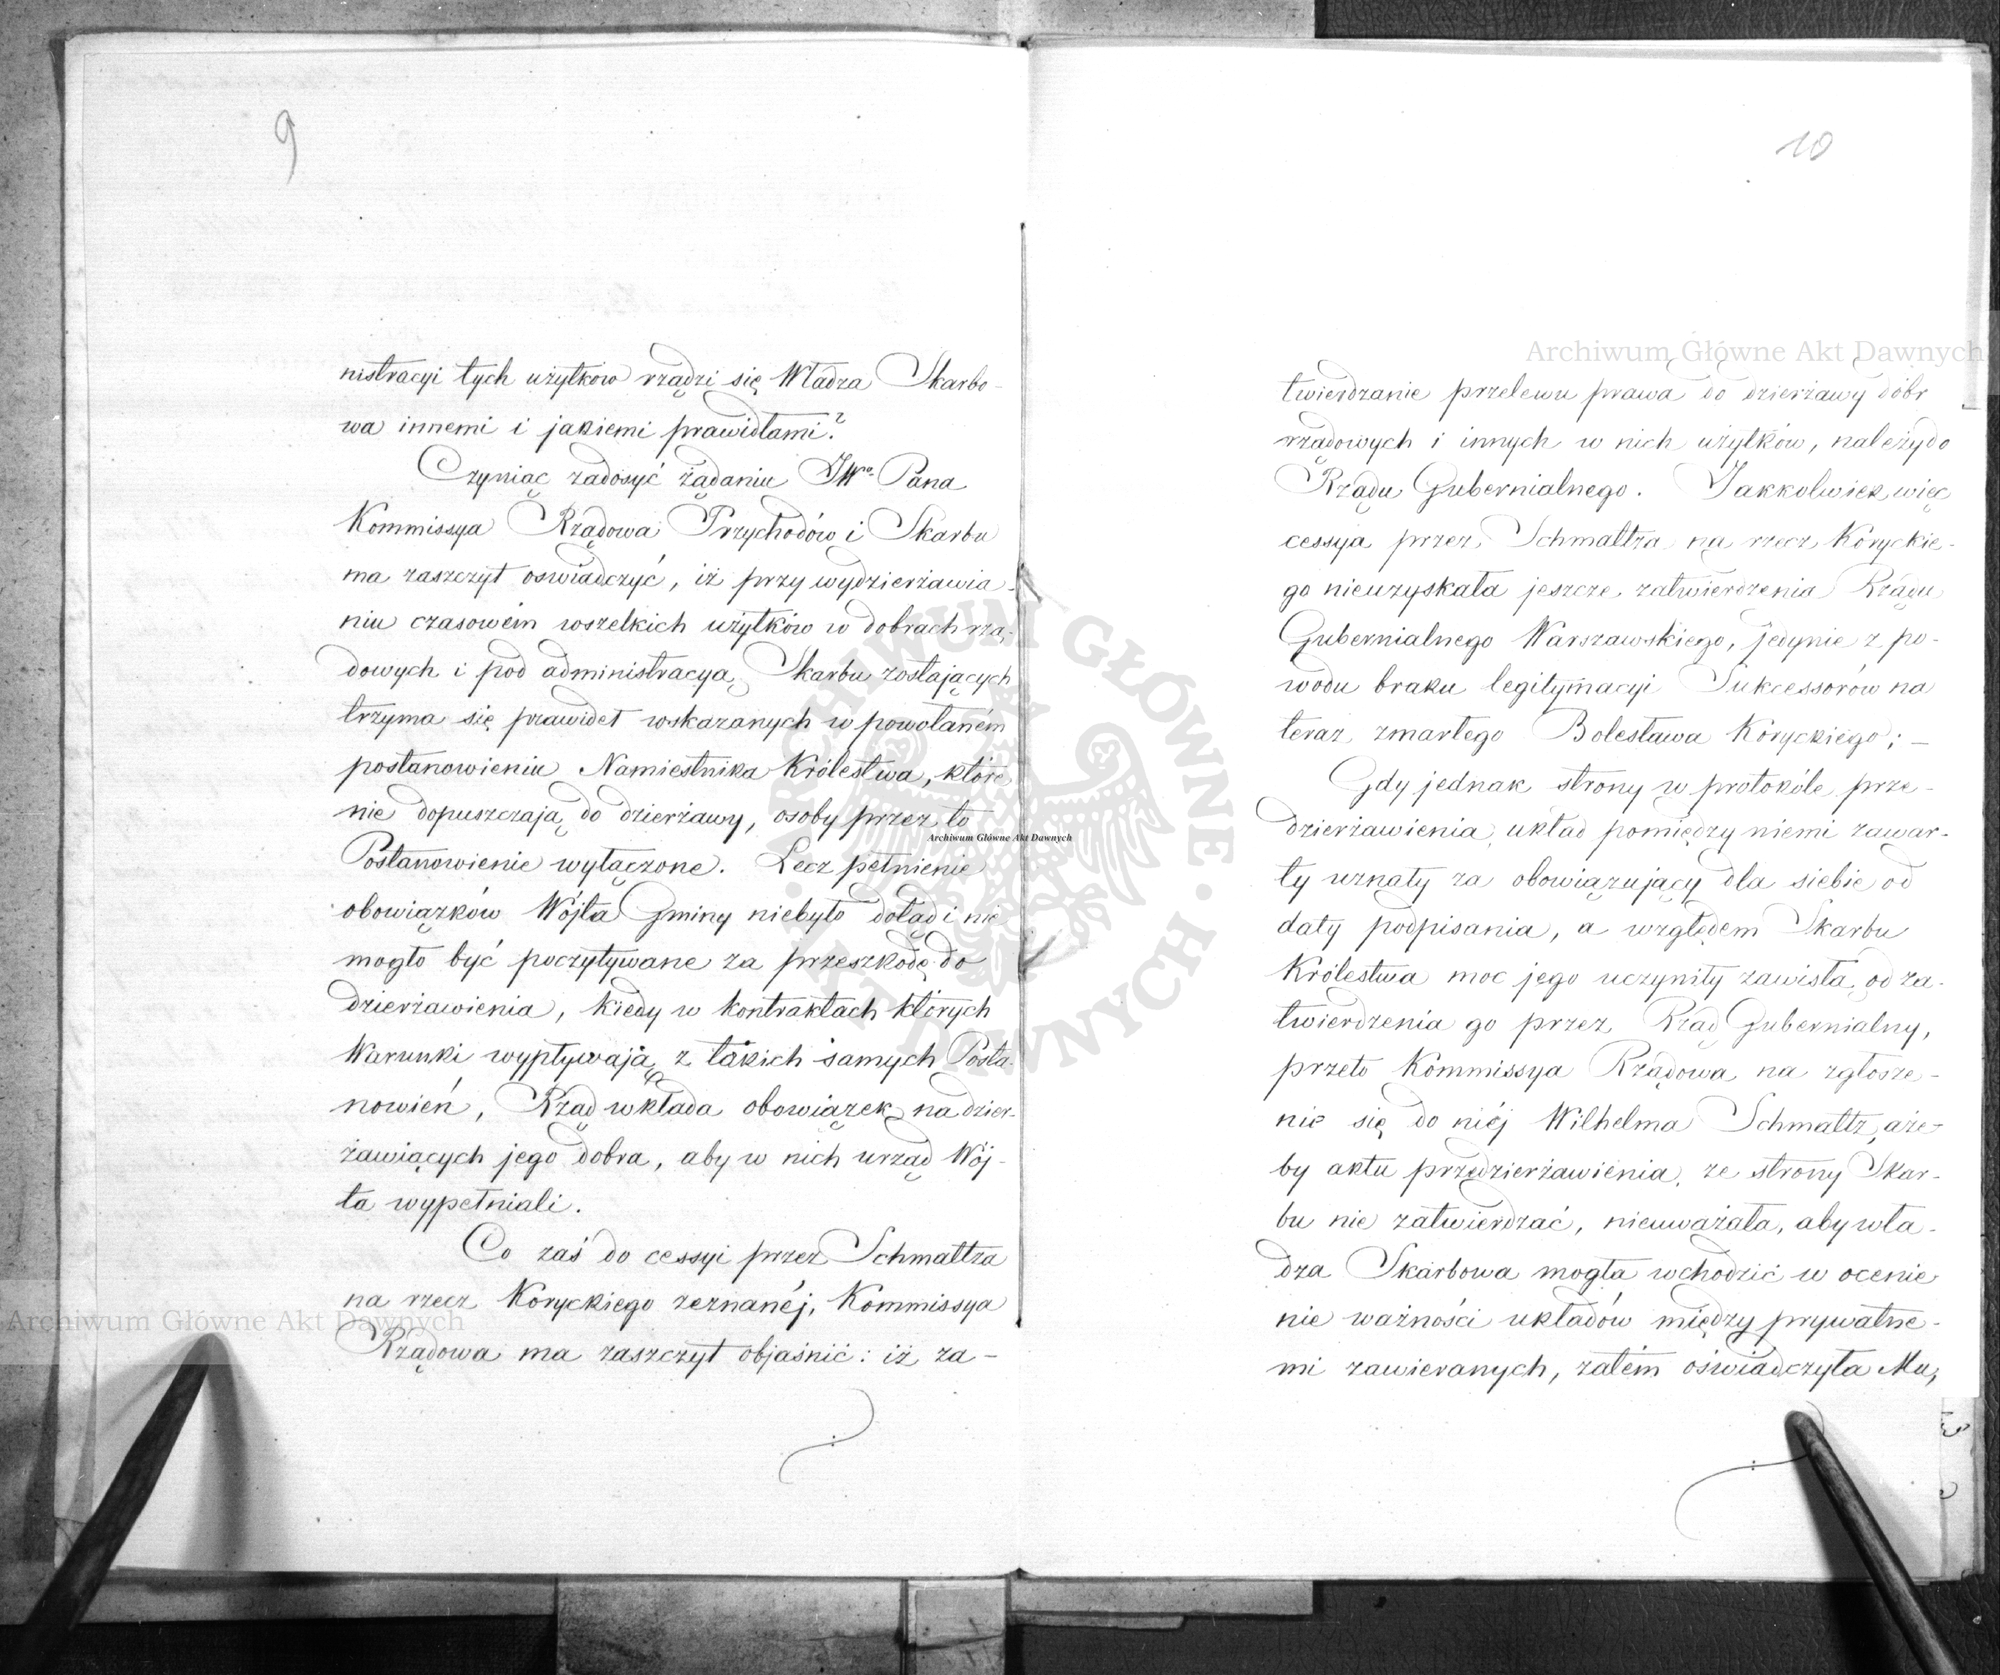 9
nistracyi tych użytków rządzi się Władza Skarbo-
wa innemi i jakiemi prawidłami?
Czyniąc zadosyć żądaniu JWo. Pana
Kommissya Rządowa Przychodów i Skarbu
ma zaszczyt oswiadczyć, iż przy wydzierżawia-
niu czasowém wszelkich użytków w dobrach rzą-
dowych i pod administracyą Skarbu zostających
trzyma się prawideł wskazanych w powołaném
postanowieniu Namiestnika Królestwa, które
nie dopuszczają do dzierżawy, osoby przez to
Postanowienie wyłączone. Lecz pełnienie
obowiązków Wójta Gminy niebyło dotąd i nie
mogło być poczytywane za przeszkodę do
dzierżawienia, kiedy w kontraktach których
Warunki wypływają z takich samych Posta-
nowień, Rząd wkłada obowiązek na dzier-
żawiących jego dobra, aby w nich urząd Wój-
ta wypełniali.
Co zaś do cessyi przez Schmaltza
na rzecz Koryckiego zeznanéj, Kommissya
Rządowa ma zaszczyt objaśnić: iż za-
10
twierdzanie przelewu prawa do dzierżawy dóbr
rządowych i innych w nich użytków, należy do
Rządu Gubernialnego. Jakkolwiek więc
cessya przez Schmaltza na rzecz Koryckie-
go nieuzyskała jeszcze zatwierdzenia Rządu
Gubernialnego Warszawskiego, jedynie z po-
wodu braku legitymacyi Sukcessorów na
teraz zmarłego Bolesława Koryckiego; –
Gdy jednak strony w protokóle prze-
dzierżawienia, układ pomiędzy niemi zawar-
ty uznały za obowiązujący dla siebie od
daty podpisania, a względem Skarbu
Królestwa moc jego uczyniły zawisłą od za-
twierdzenia go przez Rząd Gubernialny,
przeto Kommissya Rządowa na zgłosze-
nie się do niéj Wilhelma Schmaltz, aże-
by aktu przedzierżawienia, ze strony Skar-
bu nie zatwierdzać, nieuważała, aby wła-
dza Skarbowa mogła wchodzić w ocenie
nie ważności układów między prywatne-
mi zawieranych, zatém oświadczyła Mu,
Archiwum Główne Akt Dawnych
Archiwum Główne Akt Dawnych
Archiwum Główne Akt Dawnych
ARCHIWUM GŁÓWNE AKT DAWNYCH